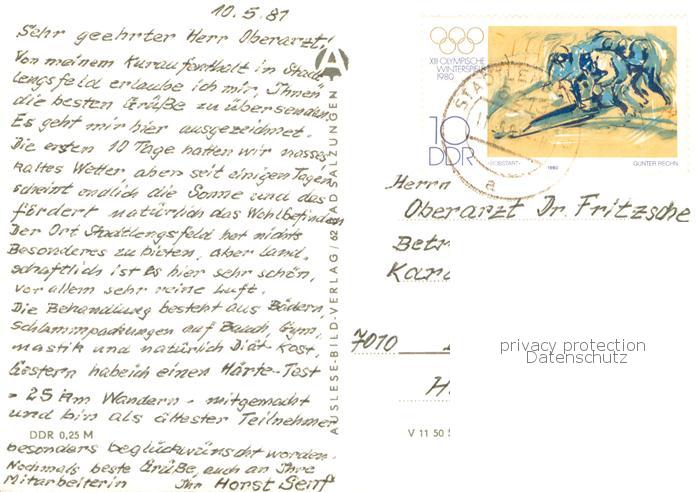 10.5.81
Sehr geehrter Herr Oberarzt!
Von meinem Kuraufenthalt in Stadt-
lengsfeld erlaube ich mir, Ihnen
die besten Grüße zu übersenden.
Es geht mir hier ausgezeichnet.
Die ersten 10 Tage hatten wir nasses
kaltes Wetter, aber seit einigen Tagen
scheint endlich die Sonne und das
fördert natürlich das Wohlbefinden.
Der Ort Stadtlengsfeld hat nichts
Besonderes zu bieten, aber land-
schaftlich ist es hier sehr schön,
vor allem sehr reine Luft.
Die Behandlung besteht aus Bädern,
Schlammpackungen auf Bauch, Gym-
mastik und natürlich Diät-Kost,
Gestern habe ich einen Härte-Test
- 25 km Wandern - mitgemacht
und bin als ältester Teilnehmer
besonders beglückwünscht worden.
Nochmals beste Grüße, auch an Ihre
Mitarbeiterin Ihr Horst Senf
DDR 0,25 M
AUSLESE-BILD-VERLAG/62 BAD SALZUNGEN
A
XIII. OLYMPISCHE
WINTERSPIELE
1980
10
DDR
»BOBSTART«
1980
GÜNTER RECHN
STADTLE
a
Herrn
Oberarzt Dr. Fritzsche
Betr
Kard
7010
H
V 11 50
privacy protection
Datenschutz